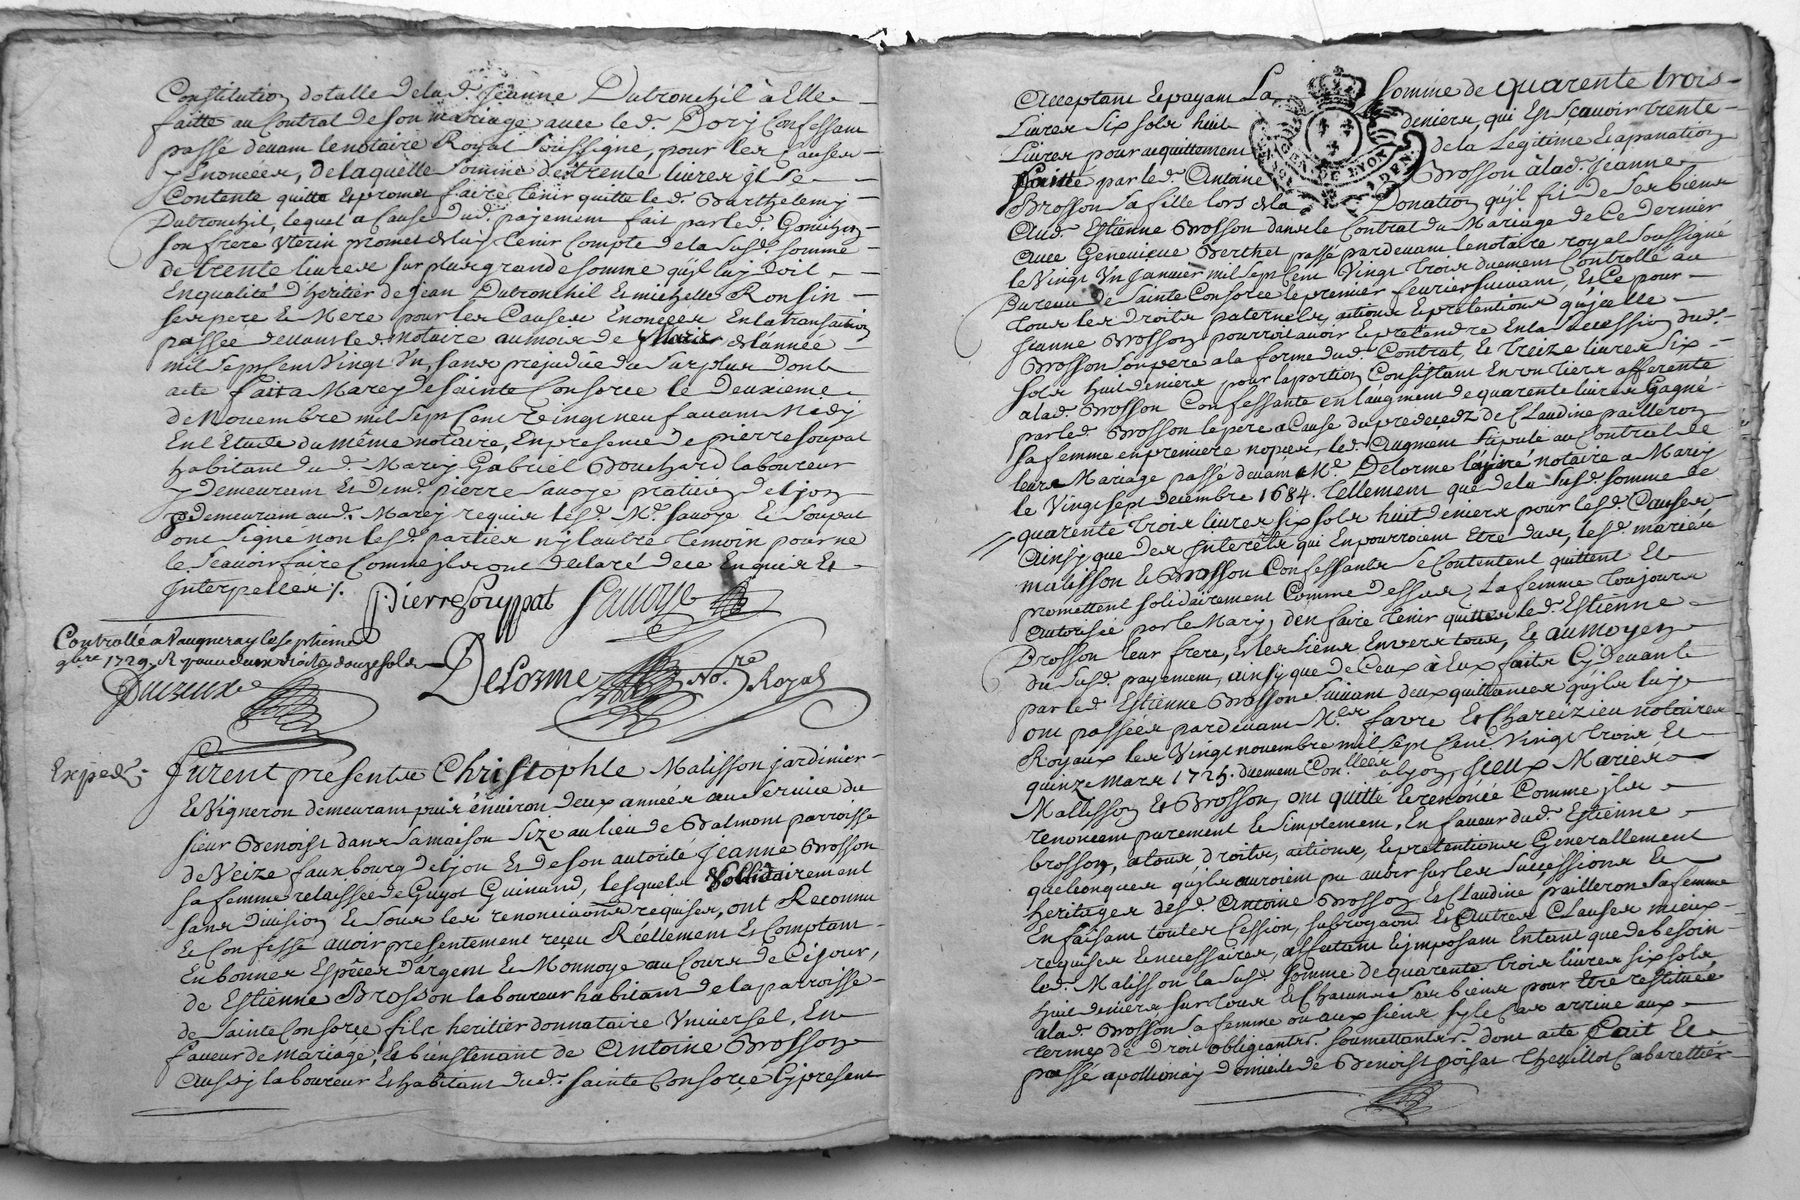 Constitution dotalle de lad. Jeanne Dutronchil à Elle
faitte au Contrat de son mariage avec led. Dorj Confessam
passé devam le notaire Royal soussigne, pour les Causes
y Enoncees, de laquelle somme de trente livres jl se
Contente quitte et promet faire tenir quitte led. Barthelemy
Dutronchil, lequel a Cause dud. payement fait par led. Gonichon
son frere Vterin promet de luy tenir Compte de la susd. somme
de trente livres sur plus grande somme qu'jl luj doit
En qualité d'heritier de Jean Dutronchil et michelle Ronsin
ses pere et Mere pour les Causes Enoncees En la transaction
passée devant led. notaire au mois de Mars de l'année
mil sept cent Vingt Vn, sans prejudice du surplus dont
acte fait a Marcy de sainte Consorce le Deuxieme
de Novembre mil sept Cent Vingt neuf avam Midy
En l'Etude du même notaire, En presence de pierre soupat
habitant dud. Marcy Gabriel Bouchard laboureur
y demeuram et de md. pierre savoye praticien de lyon
y demeuram aud. Marcy requis lesd. Md. Savoye et Soupat
ont signé non lesd. parties ny l'autre temoin pour ne
le scavoir faire Comme jls ont declaré de ce Enquis et
Interpellés /.
Pierre Souppat Savoye
Controllé a Vaugneray le septieme
9bre 1729, R pour deux droits douze sols
DeLorme No.re Royal
Exped.
Furent presents Christophle Malisson jardinier
et Vigneron demeuram puis environ deux années au service du
sieur Benoist dans sa maison size au lieu de Balmont parroisse
de Veize faux bourg de lyon et de son autorité Jeanne Brosson
sa femme relaissée de Guyot Guinand, lesquels sollidairement
sans division et sous les renonciaons requises, ont Reconnu
et Confessé avoir presentement reçeu Réellement et Comptam
En bonnes Espèces d'argent et Monnoye au Cours de Céjour,
de Estienne Brosson laboureur habitant de la parroisse
de sainte Consorce fils heritier donnataire Vniversel, En
faveur de mariage, et bienstenant de Antoine Brosson
aussy laboureur et habitant dud. sainte Consorce Cy present
Acceptant et payam La somme de quarente trois
Livres six sols huit deniers, qui Est scavoir trente
Livres pour acquittement de la Legitime et apanation
faitte par led. Antoine Brosson à lad. Jeanne
Brosson sa fille lors de la Donation qu'jl fit de ses biens
Aud. Estienne Brosson dans le Contrat du Mariage de Ce dernier
Avec Genevieve Berthet passé pardevam le notaire royal soussigné
le Vingt Vn Janvier mil sept Cent Vingt trois duement Controllé au
Bureau de Sainte Consorce le premier fevrier suivant, et Ce pour
tous les droits paternels, actions et pretentions qu'jcelle
Jeanne Brosson pourroit avoir et pretendre En la succession dud.
Brosson son pere a la forme dud. Contrat, et treize livres six
sols huit deniers pour la portion Consistant En vn tiers afferente
a lad. Brosson Confessante en l'augment de quarente livres Gagné
par led. Brosson le pere a Cause du predecedz de Claudine pailleron
sa femme en premiere nopces, led. Augment stipulé au Contrat de
leurs Mariage passé devam Me. Delorme l'ayné notaire a Marcy
le Vingt sept decembre 1684. tellement que de la susd. somme de
quarente trois livres six sols huit deniers pour lesd. Causes
Ainsy que des Interets qui En pourroient Etre dus, lesd. mariés
malisson et Brosson Confessants se Contentent quittent et
promettent solidairement Comme dessus, la femme toujours
autorisée par le Mary, d'en faire tenir quittes led. Estienne
Brosson leur frere, et les siens Envers tous, et au moyen
du susd. payement, ainsy que de Ceux à Eux faits Cj devant
par led. Estienne Brosson suivant deux quittances qu'jls luj
ont passées pardevam Mes. favre et Chareizieu notaires
Royaux les Vingt novembre mil sept Cent Vingt trois et
quinze Mars 1725. duement Con.llées a lyon, jceux Mariés
Mallisson et Brosson, ont quitté et renoncée Comme jls
renoncent purement et simplement, En faveur dud. Estienne
brosson, a tous droits, actions, et pretentions Generallement
quelconques qu'jls auroient pu avoir sur les successions et
heritages desd. Antoine Brosson et Claudine pailleron sa femme
En faisant toutes Cession, subrogaon. et Autres Clauses mieux
requises et necessaires, assurant et jmposam Entant que de besoin
led. Malisson la susd. somme de quarente trois livres six sols
huit deniers sur tous et Chacuns ses biens pour Etre restituée
a lad. Brosson sa femme ou aux siens sy le Cas arrive aux
termes de Droit obligeants. soumettants. dont acte fait et
passé a pollionay domicile de Benoist poisat thevillot Cabarettier